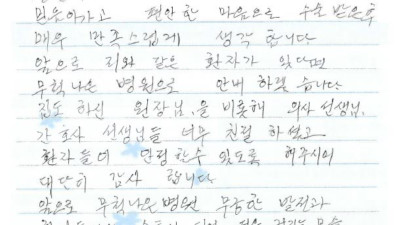 믿음이가고 편안한 마음으로 수술 받은후
매우 만족스럽게 생각 합니다
앞으로 리와 같은 환자가 있다면
무척나은 병원으로 안내 하겠 습니다
집도 하신 원장님, 을 비롯해 의사 선생님,
간호사 선생님들 너무 친절 하셨고
환자들이 할수 있도록 해주시어
대단히 감사 합니다
앞으로 무척나은병원 무궁한 발전과